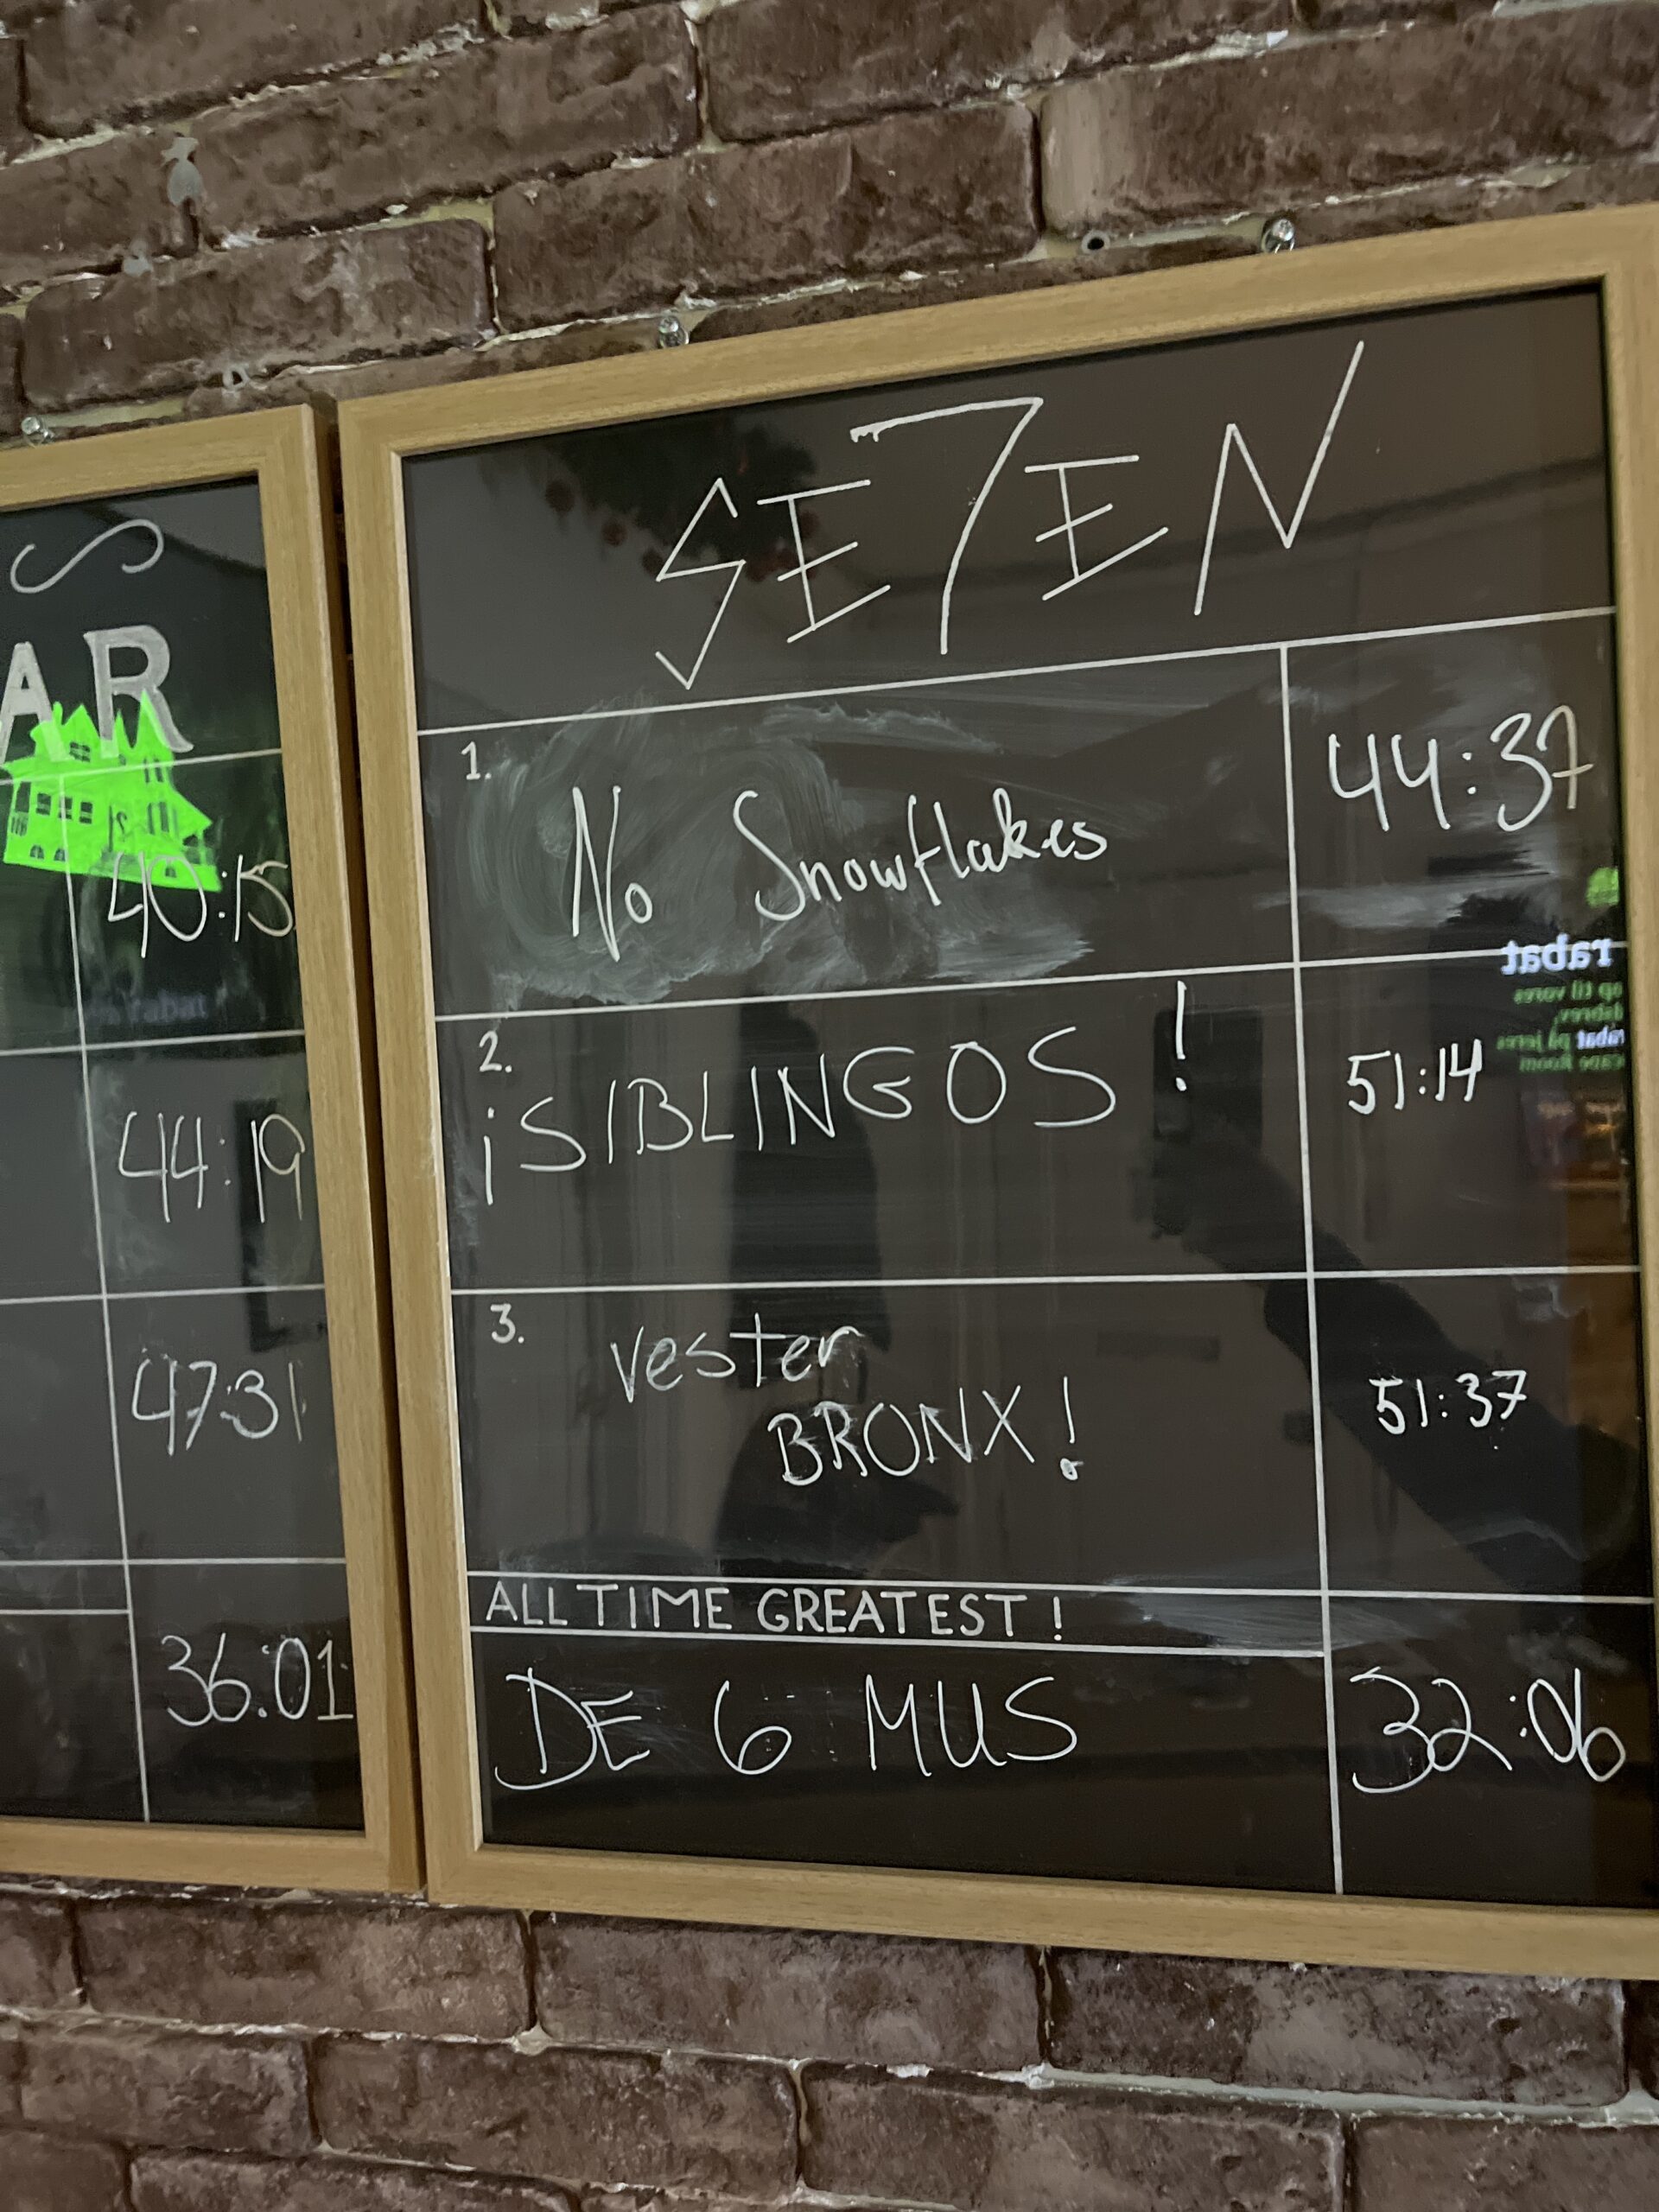 AR
40:15
44:19
47:31
36.01
SE7EN
1.
No Snowflakes
44:37
2.
¡SIBLINGOS!
51:14
3.
vester
BRONX!
51:37
ALL TIME GREATEST!
DE 6 MUS
32:06
rabat
op til vores
rabat på jeres